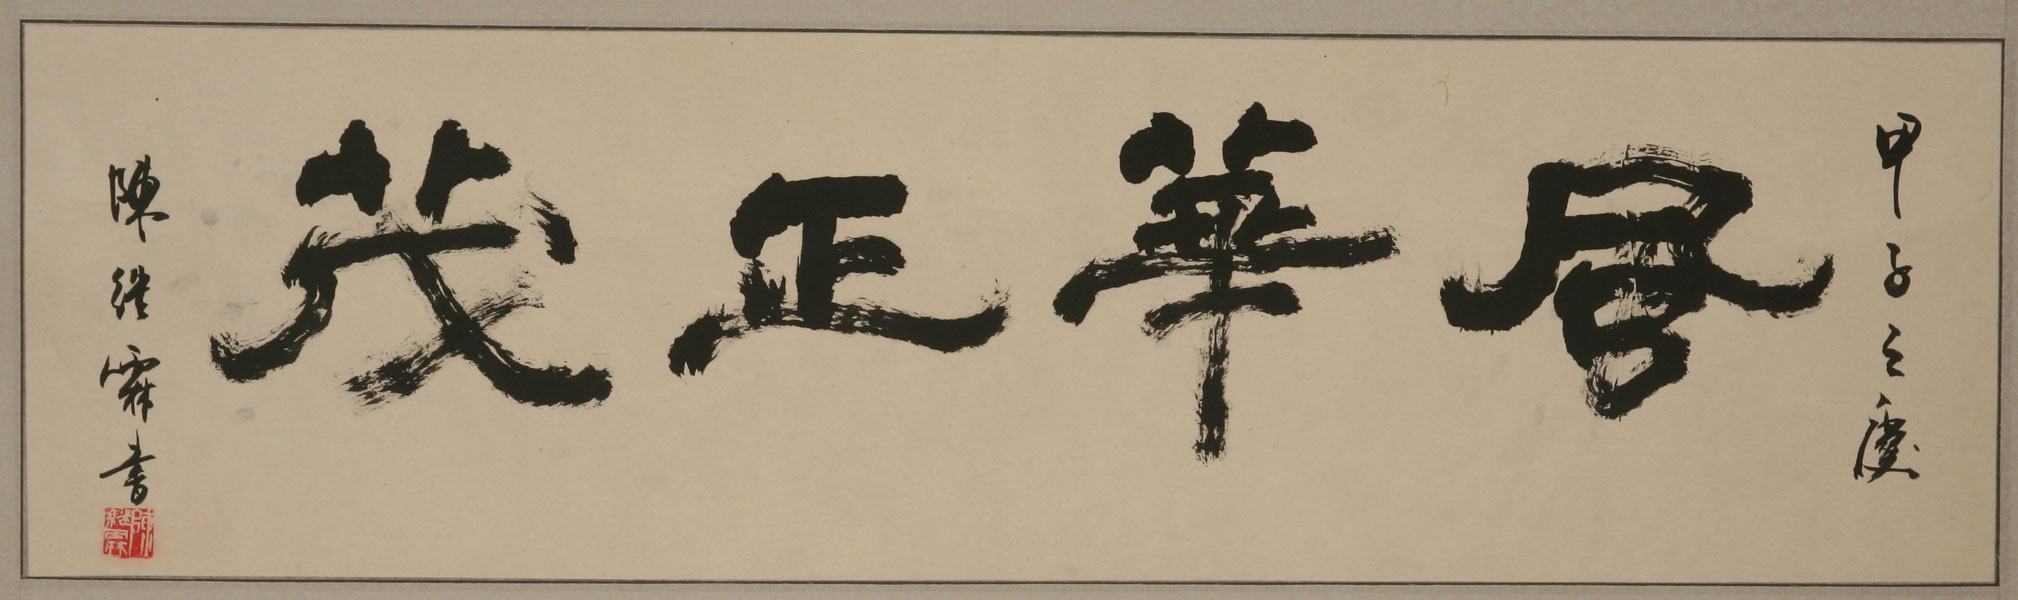 甲子之夏
風華正茂
陳繼霖書
陳繼霖